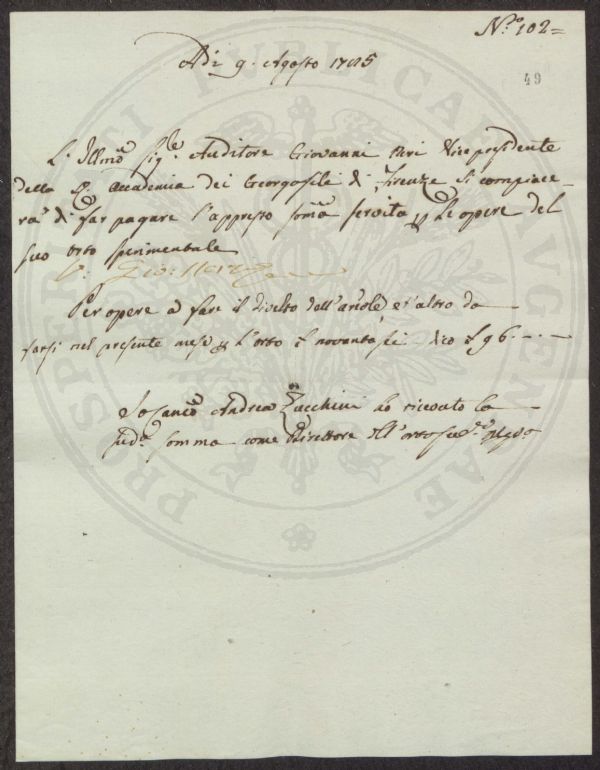 N.º 102=
49
Adì 9. Agosto 1785
L'Illmo Sig.e Auditore Giovanni Neri Vicepresidente
della R. Accademia dei Georgofili di Firenze si compiace-
rà di far pagare l'appresso somma servita p le opere del
suo orto sperimentale
Per opere a fare il divelto dell' e l'altro da
farsi nel presente mese p l'orto £ novantasei dico £ 96.—.—
Io Canco Andrea Zucchini ho ricevuto la
sudª somma come Direttore dell'orto
PROSPERITATI PUBLICAE AUGENDAE